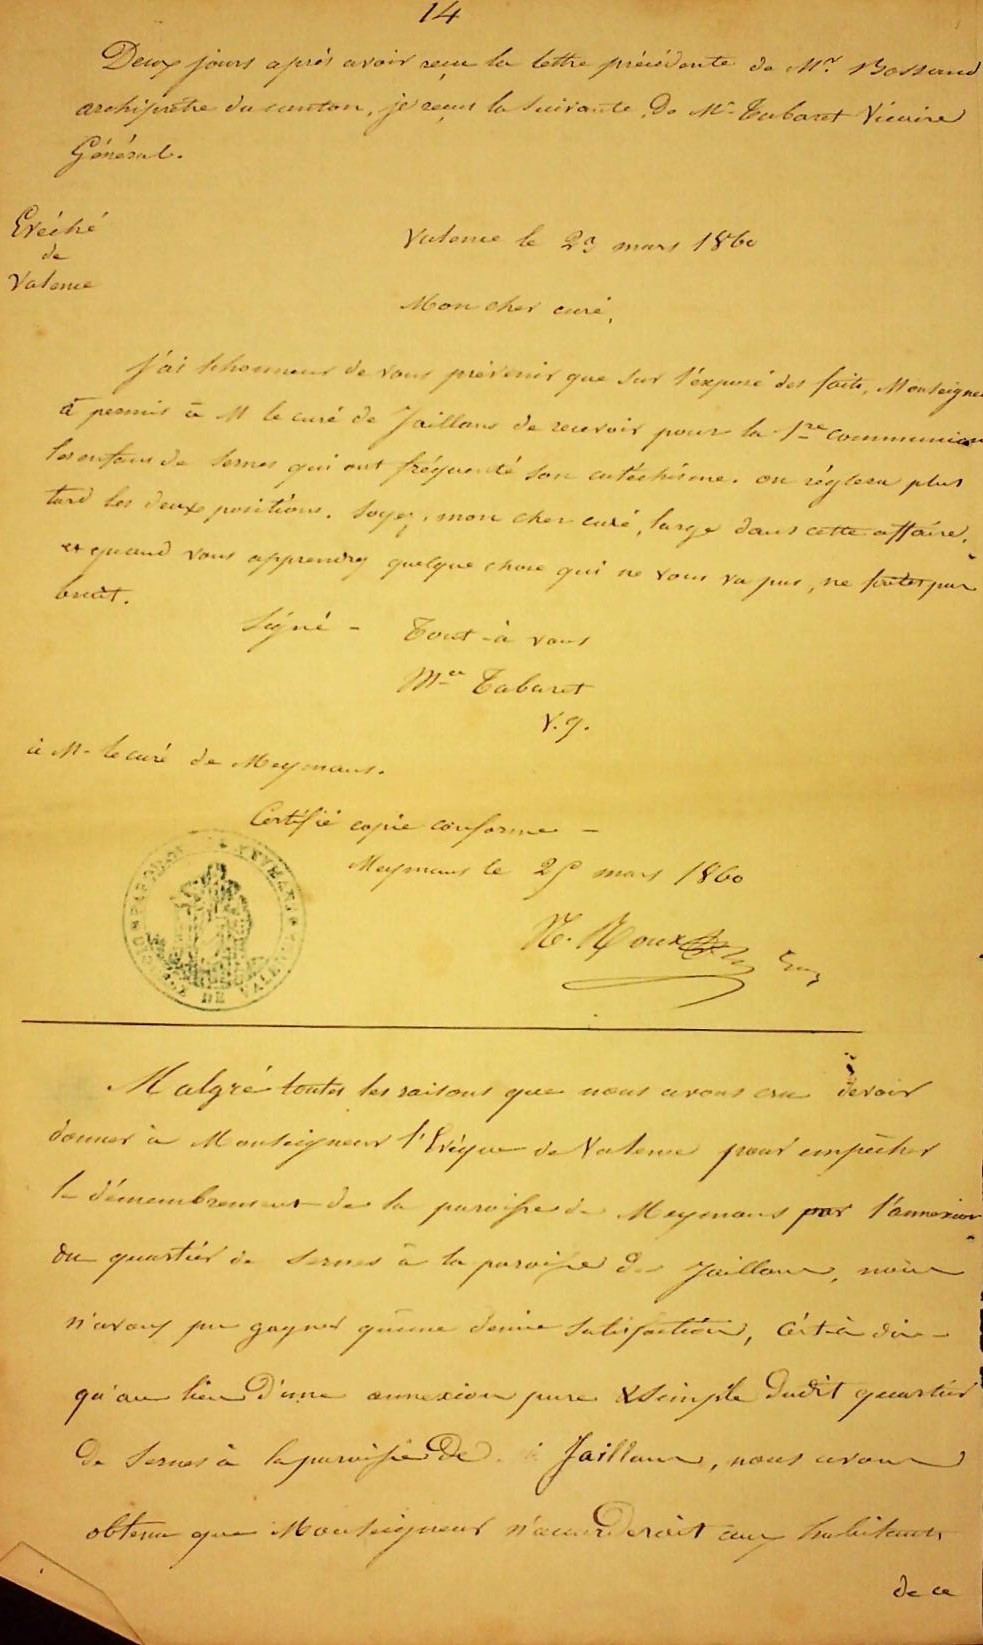 14
Deux jours après avoir reçu la lettre précédente de Mr Bossand
archiprêtre du canton, je reçus la suivante de Mr Tabaret Vicaire
Général.
Evéché
de
Valence
Valence le 23 mars 1860
Mon cher curé,
J'ai l'honneur de vous prévenir que sur l'exposé des faits, Monseigneur
a permis à M le curé de Jaillans de recevoir pour la 1re communion
les enfans de Sernes qui ont fréquenté son catéchisme. on réglera plus
tard les deux positions. Soyez, mon cher curé, large dans cette affaire,
et quand vous apprendrez quelque chose qui ne vous va pas, ne faites pas
bruit.
Signé - Tout-à vous
Tabaret
v.g.
à M- le curé de Meymans.
Certifié copie conforme -
Meymans le 25 mars 1860
Roux
DE VALENCE
Malgré toutes les raisons que nous avons cru devoir
donner à Monseigneur l'Evêque de Valence pour empêcher
le démembrement de la paroisse de Meymans par l'annexion
du quartier de Sernes à la paroisse de Jaillans, nous
n'avons pu gagner qu'une demie satisfaction, c'est-à dire
qu'au lieu d'une annexion pure & simple dudit quartier
de Sernes à la paroisse De Jaillans, nous avons
obtenu que Monseigneur n'accorderait aux habitants
de ce